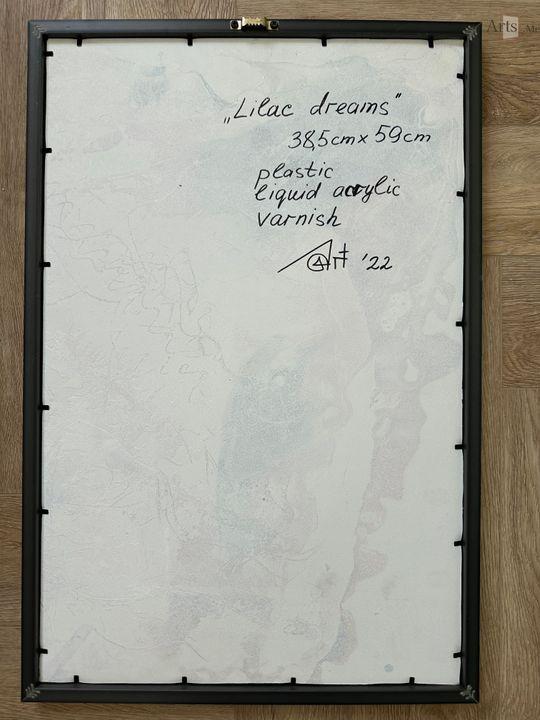 „Lilac dreams"
38,5cm x 59cm
plastic
liquid acrylic
varnish
'22
Arts